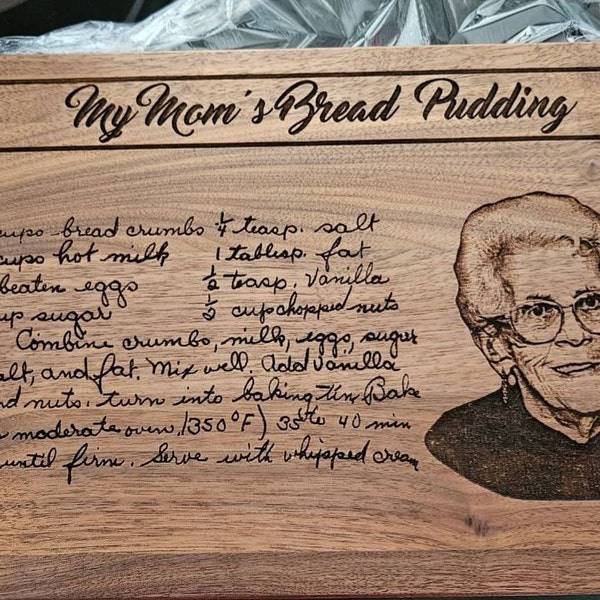 My Mom's Bread Pudding
cups bread crumbs ¼ teasp. salt
cups hot milk 1 tablesp. fat
beaten eggs ½ teasp. Vanilla
up sugar ½ cup chopped nuts
Combine crumbs, milk, eggs, sugar
alt, and fat. Mix well. Add Vanilla
nd nuts. turn into baking tin Bake
moderate oven. (350°F) 35 to 40 min
until firm. Serve with whipped cream